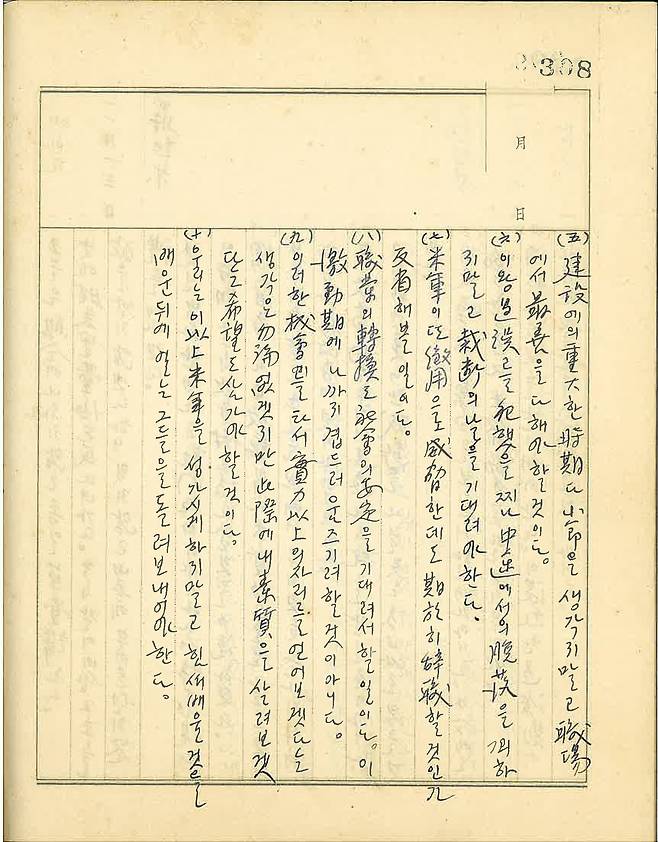 308
月
日
(五) 建設에의 重大한 時期다 小節을 생각지말고 職場
에서 最善을 다해야할것이다.
(六) 이왕 過誤를 犯했을찌나 中途에서의 脫落을 꾀하
지말고 裁断의 날을 기대려야한다.
(七) 米軍이 또 徵用으로 威脅한데도 期於히 辞職할것인가
反省해볼일이다.
(八) 職業의 轉換도 社會의 安定을 기대려서 할일이다. 이
激動期에 나까지 겁드러 움즈기려할것이아니다.
(九) 이러한 机會를 타서 實力以上의 자리를 얻어보겟다는
생각은 勿論 없겟지만 此際에 내 素質을 살려보겟
단 希望도 삼가야 할것이다.
(十) 우리는 이 以上 米軍을 성가시게 하지말고 힘써 배을것을
배운뒤에 얼는 그들을 돌려보내어야한다.